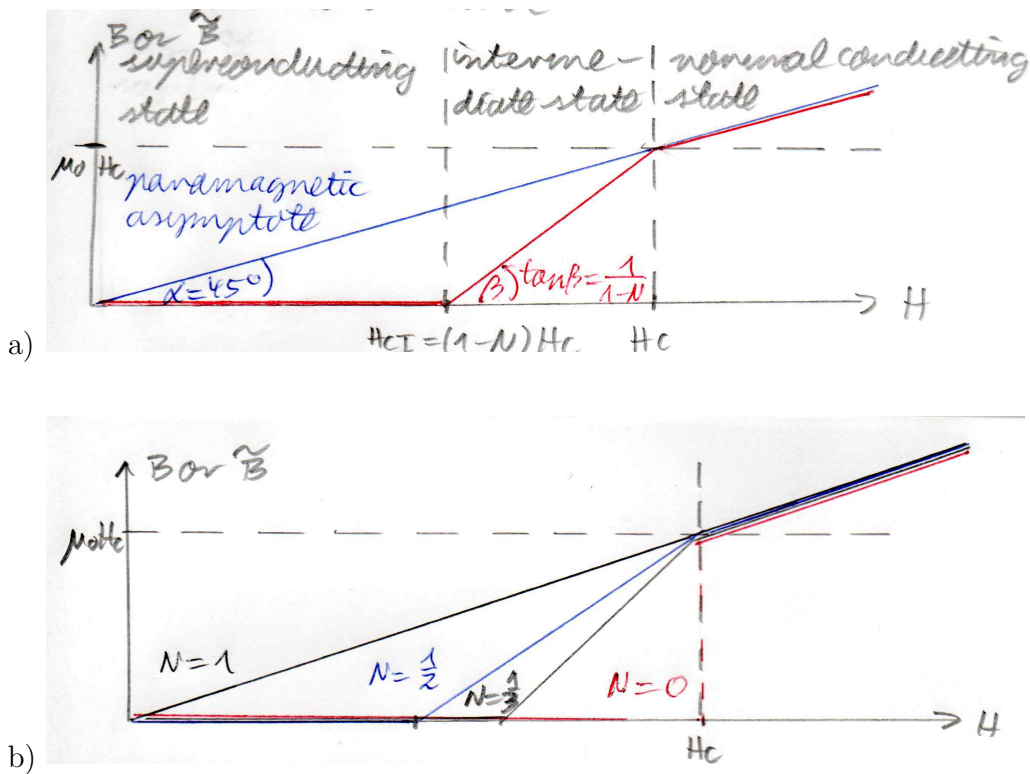 B or B̃
superconducting
state
interme-
diate state
normal conducting
state
μ₀Hc
paramagnetic
asymptote
α=45°
β) tanβ=1/(1-N)
H
HcI=(1-N)Hc
Hc
a)
B or B̃
μ₀Hc
N=1
N=1/2
N=1/3
N=0
H
Hc
b)